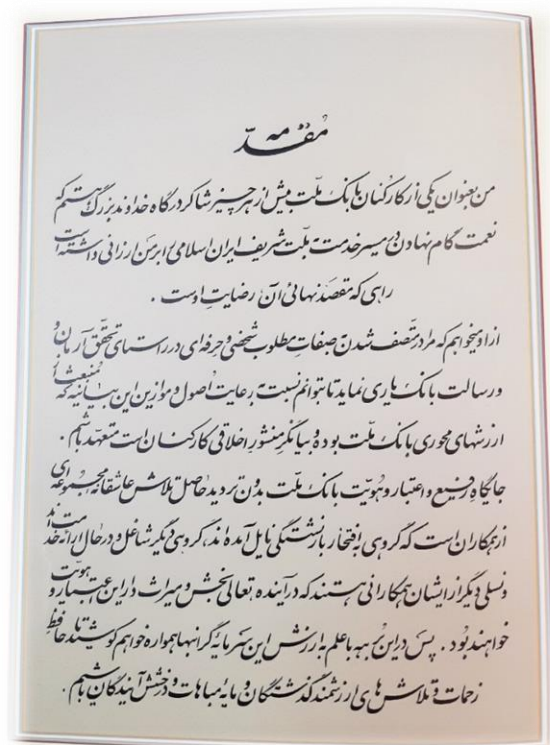 مقدمه
من بعنوان یکی از کارکنان بانک ملت بیش از هر چیز شاکر درگاه خداوند بزرگ هستم که
نعمت گام نهادن در مسیر خدمت به ملت شریف ایران اسلامی را بر من ارزانی داشته است
راهی که مقصد نهائی آن رضایت اوست .
از او میخواهم که مرا در متصف شدن به صفات مطلوب شخصی و حرفه ای در راستای تحقق آرمان و
و رسالت بانک یاری نماید تا بتوانم نسبت به رعایت اصول و موازین این بیانیه که منبعث از
ارزشهای محوری بانک ملت بوده و بیانگر منشور اخلاقی کارکنان است متعهد باشم .
جایگاه رفیع و اعتبار و هویت بانک ملت بدون تردید حاصل تلاش عاشقانه مجموعه ای
از همکاران است که گروهی به افتخار بازنشستگی نایل آمده اند، گروهی دیگر شاغل و در حال ارائه خدمت اند
و نسلی دیگر از ایشان همکارانی هستند که در آینده تعالی بخش و میراث دار این اعتبار و هویت
خواهند بود . پس در این برهه با علم به ارزش این سرمایه گرانبها همواره خواهم کوشید تا حافظ
زحمات و تلاش های ارزشمند گذشتگان و مایه مباهات و درخشش آیندگان باشم .